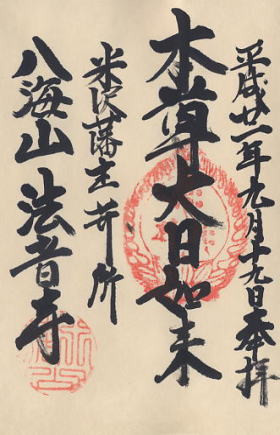 平成廿一年九月十九日奉拝
本尊大日如来
米沢藩主菩提所
八海山法音寺